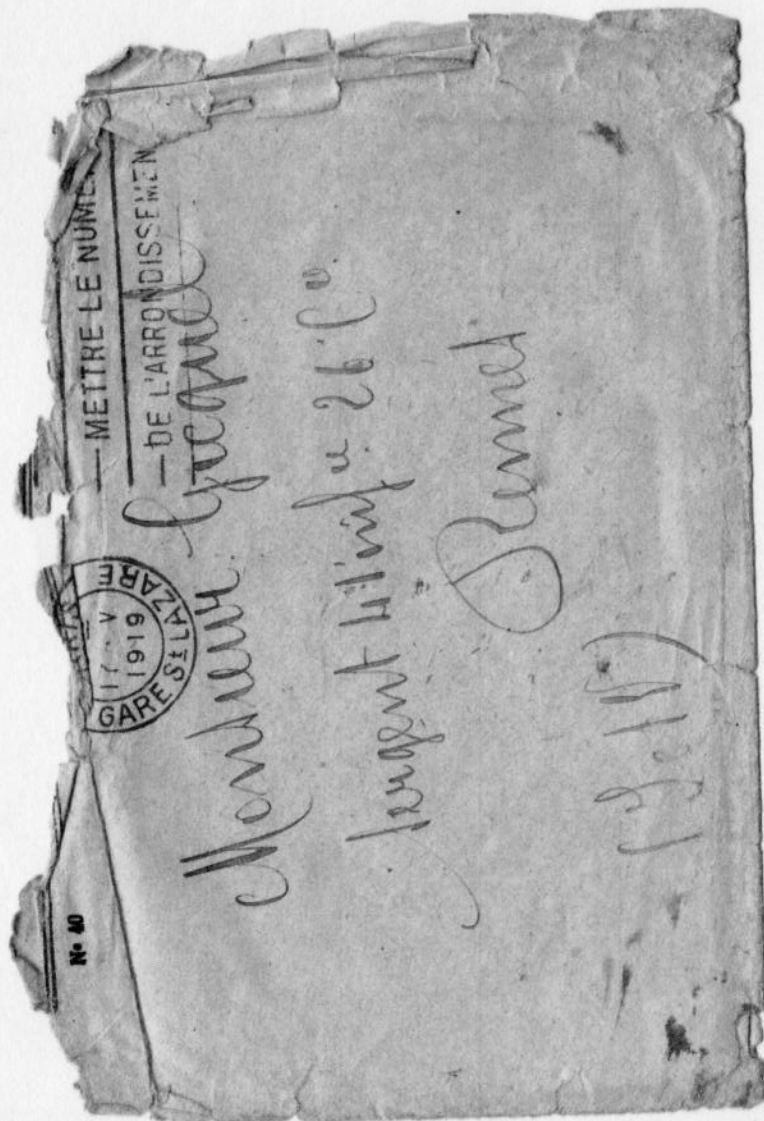 Nº 40
17 · V
1919
GARE St LAZARE
METTRE LE NUMÉ
DE L'ARRONDISSEMEN
Monsieur Jacquel
Sergent 41 infie 26 Cie
Rennes
(I et V)